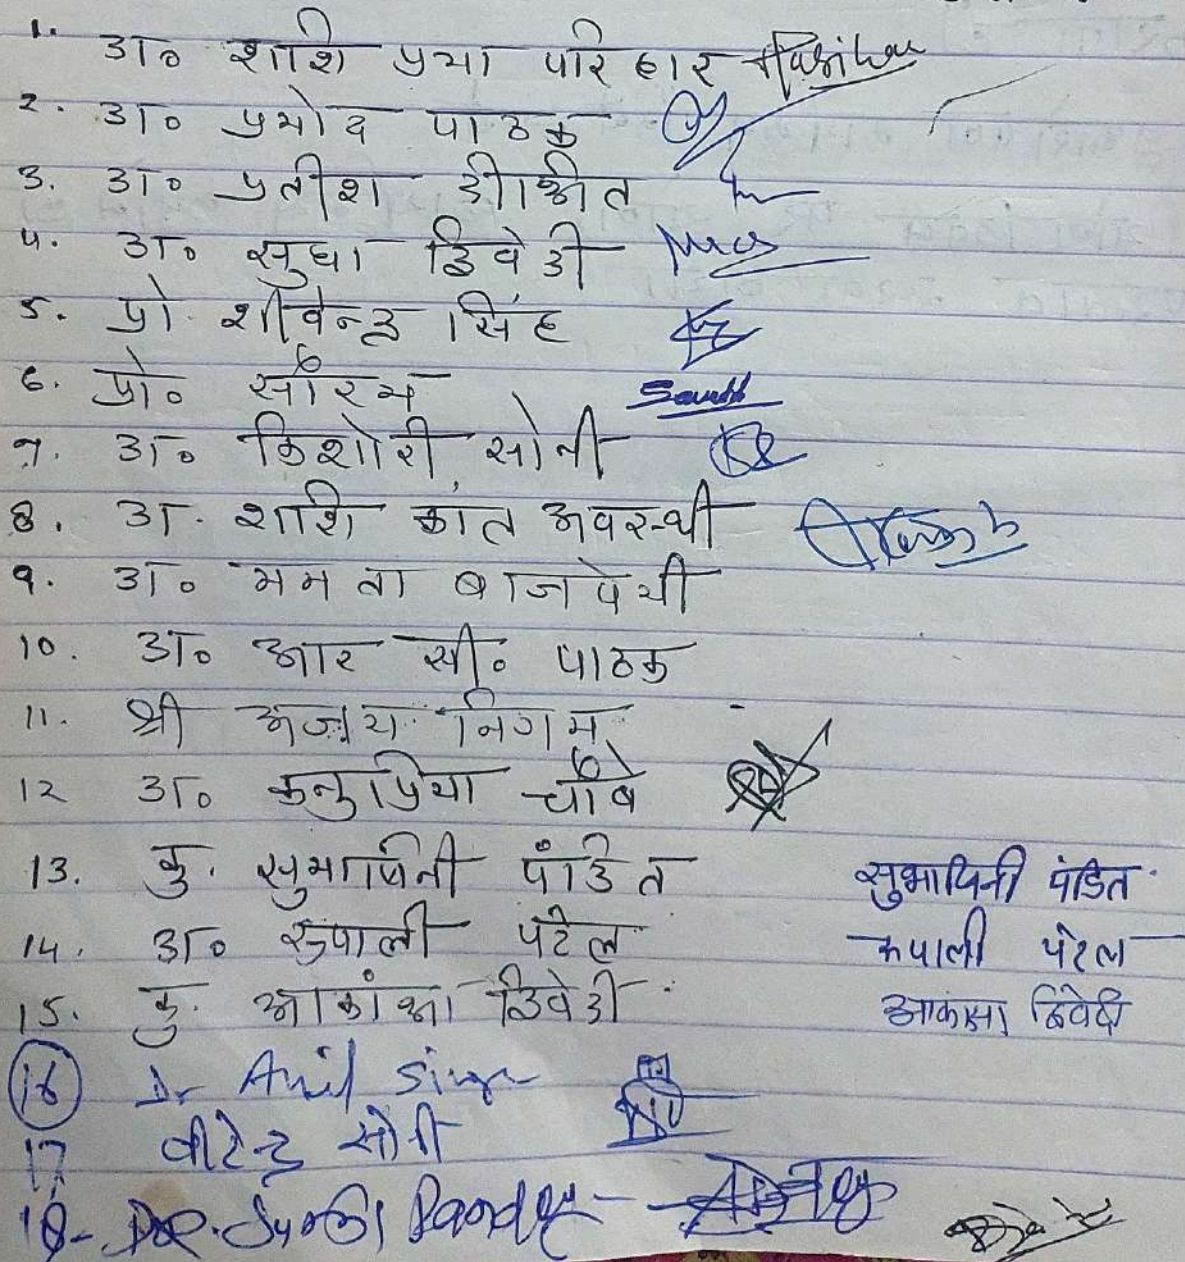 1. डा० शशि प्रभा परिहार Parihar
2. डा० प्रमोद पाठक
3. डा० प्रतीश दीक्षीत
4. डा० सुधा द्विवेदी
5. प्रो. शीवेन्द्र सिंह
6. प्रो० सौरभ Saurabh
7. डा० किशोरी सोनी
8. डा. शशि कांत अवस्थी
9. डा० ममता बाजपेयी
10. डा० आर सी० पाठक
11. श्री अजय निगम
12 डा० कनुप्रिया चौबे
13. कु. सुभाषिनी पंडित सुभाषिनी पंडित
14. डा० रुपाली पटेल रुपाली पटेल
15. कु. आकांक्षा द्विवेदी आकांक्षा द्विवेदी
16 Dr Anil Singh
17 वीरेन्द्र सोनी
18- DR. Pandey